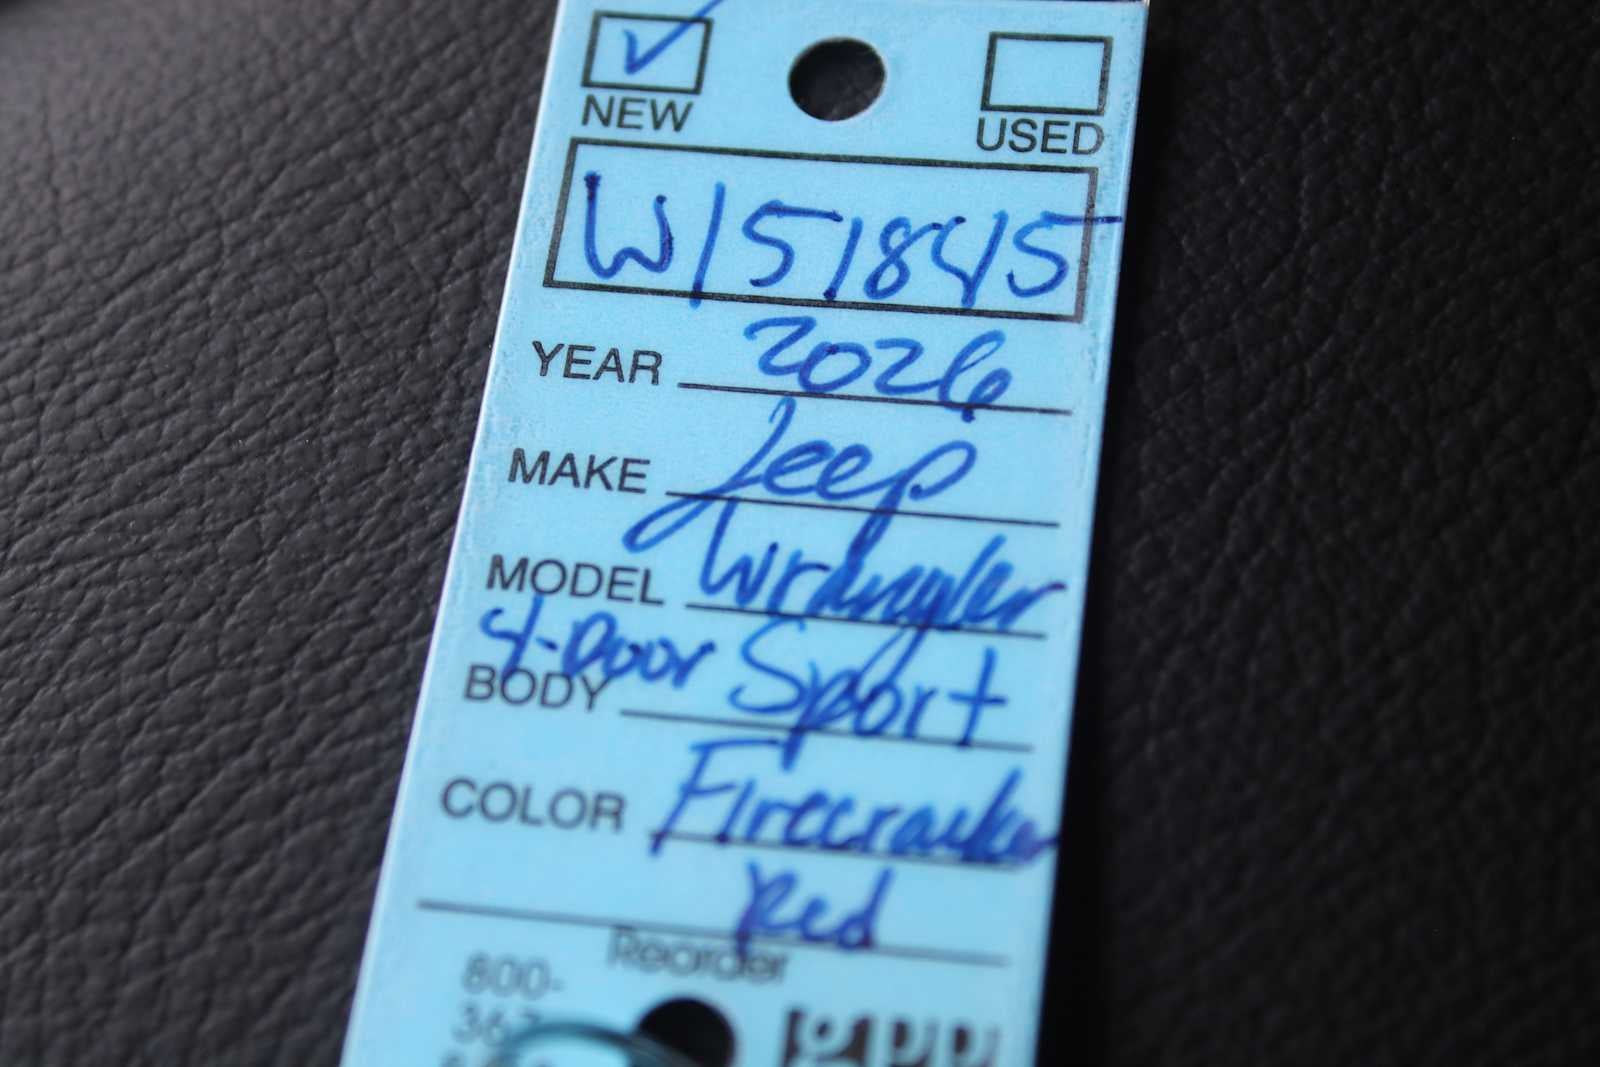 NEW USED
W151845
YEAR 2026
MAKE Jeep
MODEL Wrangler
4-Door Sport
BODY
COLOR Firecracker
Red
Reorder
800-
367-